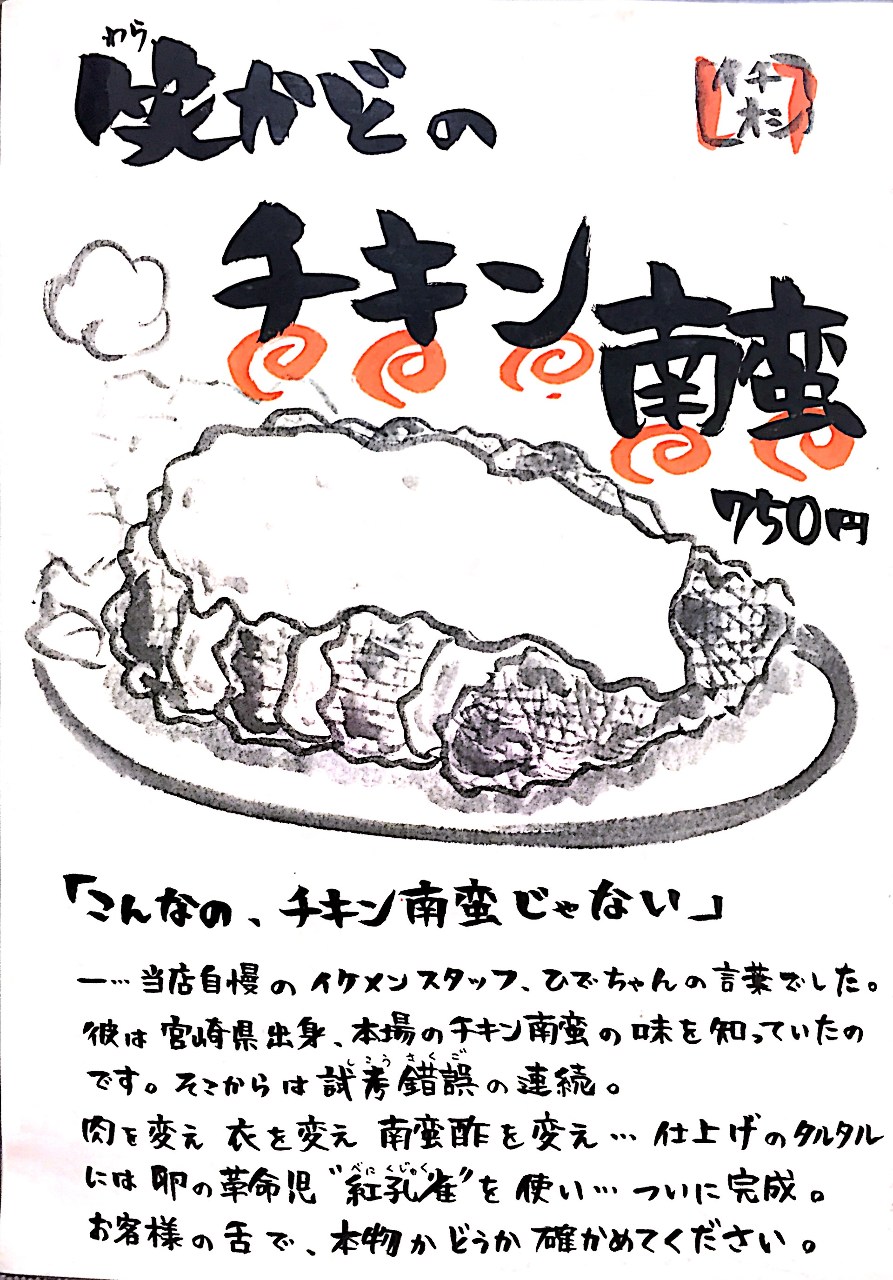 わら
笑かどの
イチ
オシ
チキン南蛮
750円
「こんなの、チキン南蛮じゃない」
一…当店自慢のイケメンスタッフ、ひでちゃんの言葉でした。
彼は宮崎県出身、本場のチキン南蛮の味を知っていたの
です。そこからは試考錯誤の連続。
しこうさくご
肉を変え 衣を変え 南蛮酢を変え…仕上げのタルタル
には卵の革命児"紅孔雀"を使い…ついに完成。
べにくじゃく
お客様の舌で、本物かどうか確かめてください。